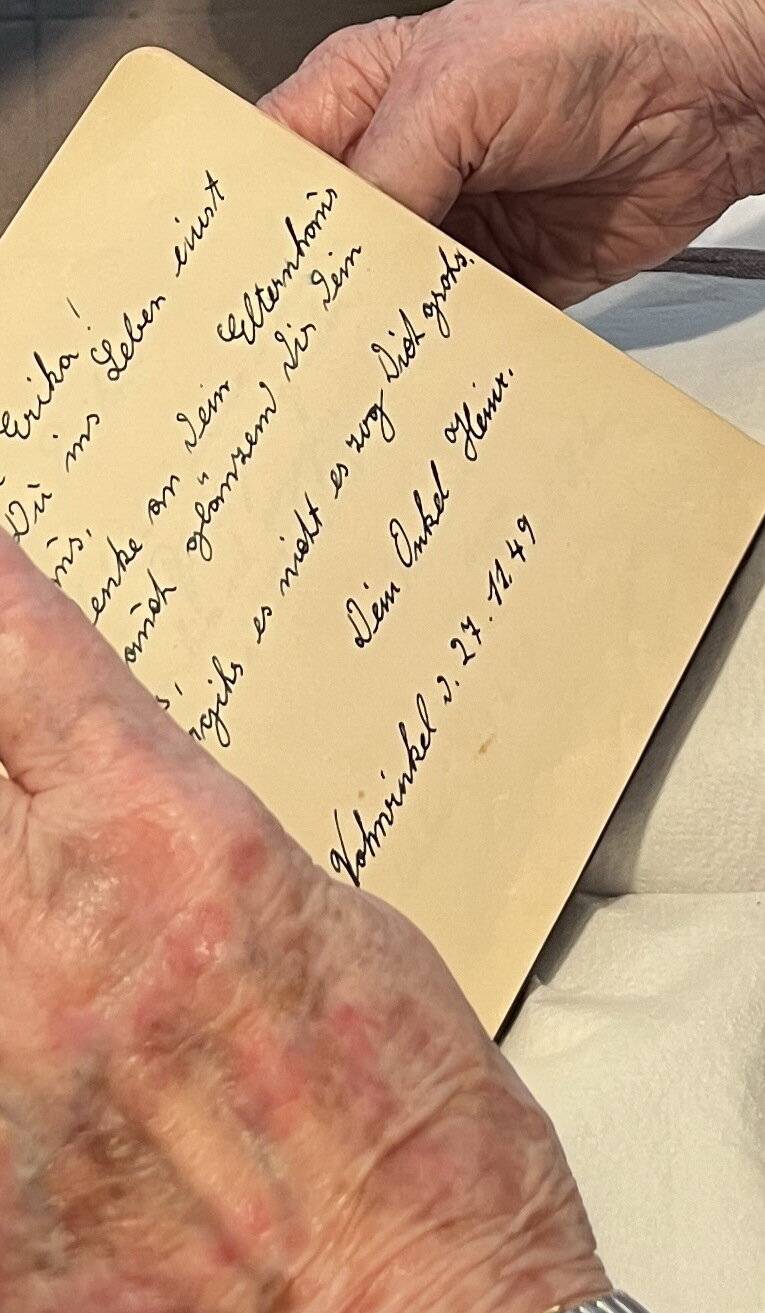 Erika!
Du ins Leben einst
us,
enke an Dein Elternhaus
auch glänzend Dir Dein
s,
rgiß es nicht es zog Dich groß.
Dein Onkel Heinr.
Vohwinkel d. 27.11.49